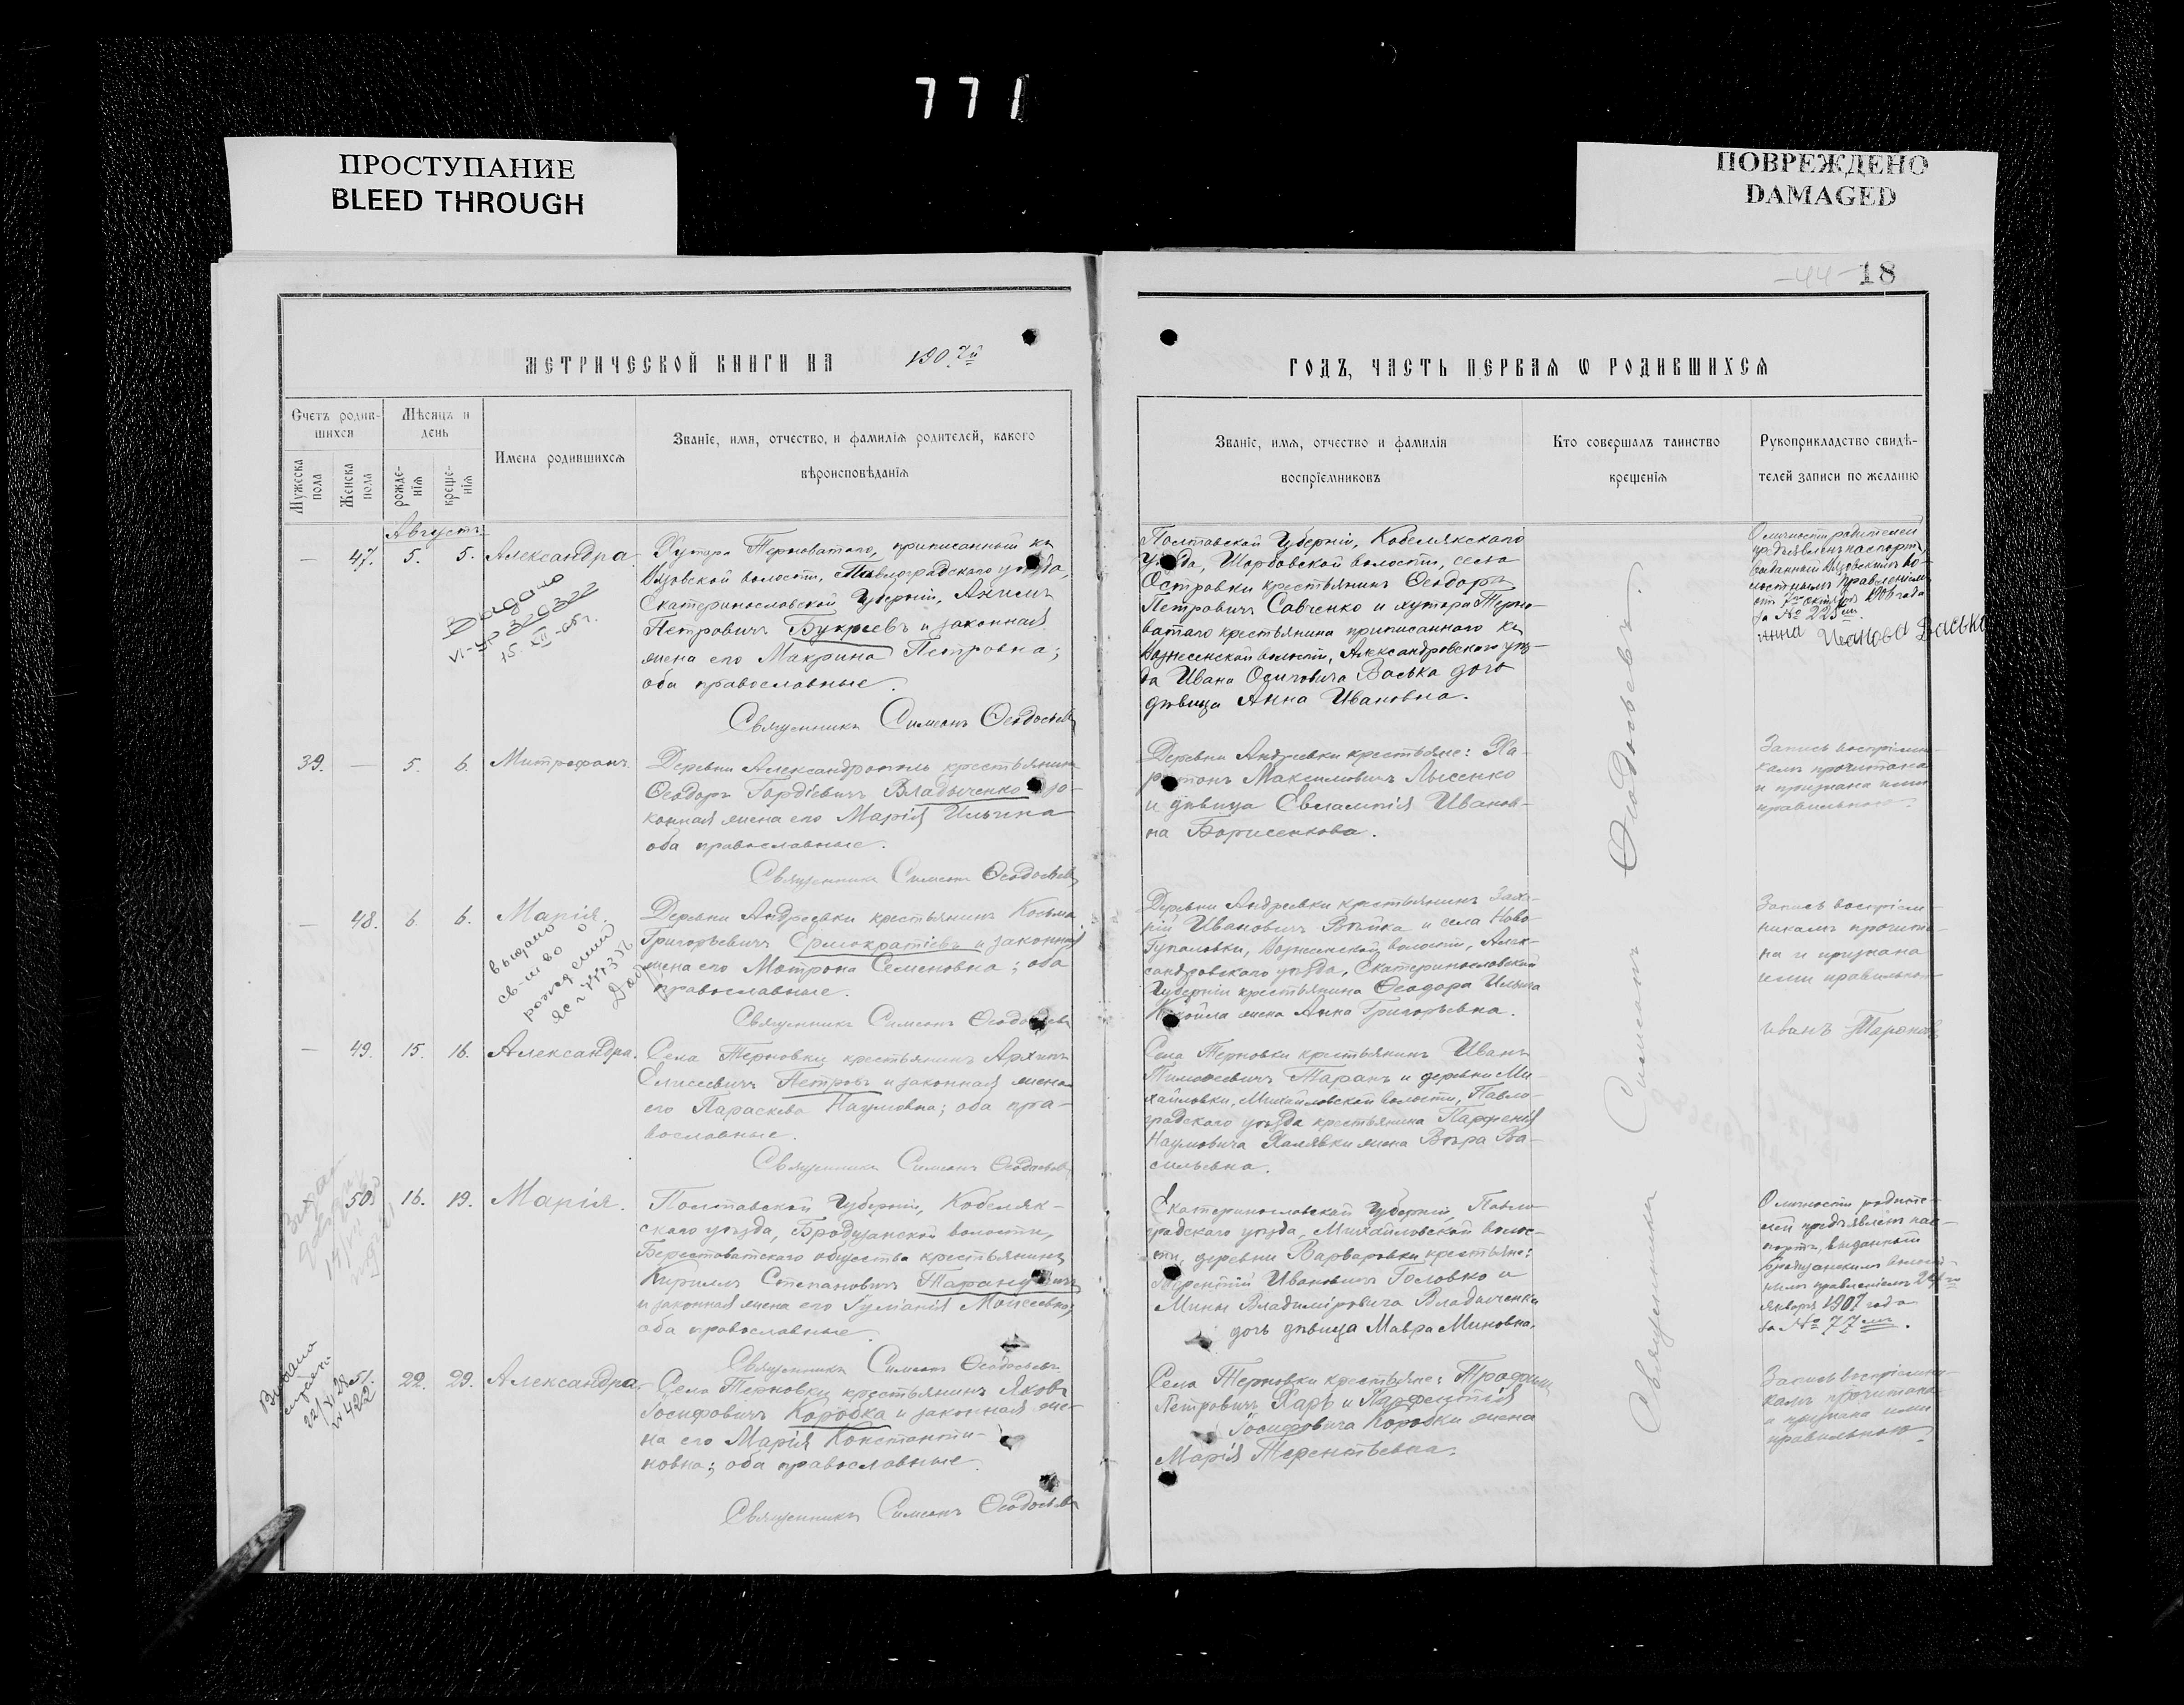 771
ПРОСТУПАНИЕ
BLEED THROUGH
ПОВРЕЖДЕНО
DAMAGED
-44-
18
МЕТРИЧЕСКОЙ КНИГИ НА 1907й
ГОДЪ, ЧАСТЬ ПЕРВАЯ Ѡ РОДИВШИХСЯ
Счетъ родив-
шихся
Мужеска
пола
Женска
пола
Мѣсяцъ и
день
рожде-
нія
креще-
нія
Имена родившихся
Званіе, имя, отчество, и фамилія родителей, какого
вѣроисповѣданія
Званіе, имя, отчество и фамилія
воспріемниковъ
Кто совершалъ таинство
крещенія
Рукоприкладство свидѣ-
телей записи по желанію
Августъ
— 47. 5. 5. Александра.
Выдано
15.XII-65г.
Хутора Терноватаго, приписанный къ
волости, Павлоградскаго уѣзда,
Екатеринославской Губерніи,
Петровичъ Букреевъ и законная
жена его Макрина Петровна;
оба православные.
Священникъ Симеонъ Ѳеодосьевъ
Полтавской Губерніи, Кобелякскаго
уѣзда, волости, села
Островки крестьянинъ Ѳеодоръ
Петровичъ Савченко и хутора Терно-
ватаго крестьянина приписаннаго къ
Вознесенской волости, Александровскаго уѣз-
да Ивана Осиповича Васька дочь
дѣвица Анна Ивановна.
О личности родителей
предъявленъ паспортъ,
выданный Во-
лостнымъ Правленіемъ
отъ 7го октября 1906 года
за № 225мъ
Анна Иванова Васька
39. — 5. 6. Митрофанъ.
Деревни Александрополь крестьянинъ
Ѳеодоръ Гордіевичъ Владыченко и за-
конная жена его Марія Ильина
оба православные.
Священникъ Симеонъ Ѳеодосьевъ
Деревни Андреевки крестьяне: Ха-
ритонъ Максимовичъ Лысенко
и дѣвица Евлампія Иванов-
на Борисенкова.
Запись воспріемни-
камъ прочитана
и признана ими
правильною.
— 48. 6. 6. Марія.
выдано
св-тво о
рождении
Деревни Андреевки крестьянинъ Козьма
Григорьевичъ Ермократіевъ и законная
жена его Матрона Семеновна; оба
православные.
Священникъ Симеонъ Ѳеодосьевъ
Деревни Андреевки крестьянинъ Заха-
рій Ивановичъ и села Ново-
Гупаловки, Вознесенской волости, Алек-
сандровскаго уѣзда, Екатеринославской
Губерніи крестьянина Ѳеодора Ильича
жена Анна Григорьевна.
Запись воспріем-
никамъ прочита-
на и признана
ими правильною
— 49. 15. 16. Александра.
Села Терновки крестьянинъ Архипъ
Елисеевичъ Петровъ и законная жена
его Параскева Наумовна; оба пра-
вославные.
Священникъ Симеонъ Ѳеодосьевъ
Села Терновки крестьянинъ Иванъ
Тимоѳеевичъ Таранъ и деревни Ми-
хайловки, Михайловской волости, Павло-
градскаго уѣзда крестьянина Парѳенія
Наумовича Халявки жена Вѣра Ва-
сильевна.
Иванъ
— 50. 16. 19. Марія.
Полтавской Губерніи, Кобеляк-
скаго уѣзда, Бродщанской волости,
Берестоватскаго общества крестьянинъ
Кириллъ Степановичъ
и законная жена его Гуліанія Моисеевна;
оба православные.
Священникъ Симеонъ Ѳеодосьевъ
Екатеринославской Губерніи, Павло-
градскаго уѣзда, Михайловской волос-
ти, деревни Варваровки крестьяне:
Терентій Ивановичъ Головко и
Мины Владиміровича Владыченки
дочь дѣвица Мавра Миновна.
О личности родите-
лей предъявленъ пас-
портъ, выданный
Бродщанскимъ волост-
нымъ правленіемъ 24го
Января 1907 года
за № 77мъ.
Выдано
22/VI 28
№ 422
22. 29. Александра.
Села Терновки крестьянинъ Яковъ
Іосифовичъ Коробка и законная же-
на его Марія Константи-
новна; оба православные.
Священникъ Симеонъ Ѳеодосьевъ
Села Терновки крестьяне: Трофимъ
Петровичъ Харь и
Іосифовича Коробки жена
Марія Терентьевна.
Запись воспріемни-
камъ прочитана
и признана ими
правильною
Священникъ Симеонъ Ѳеодосьевъ.